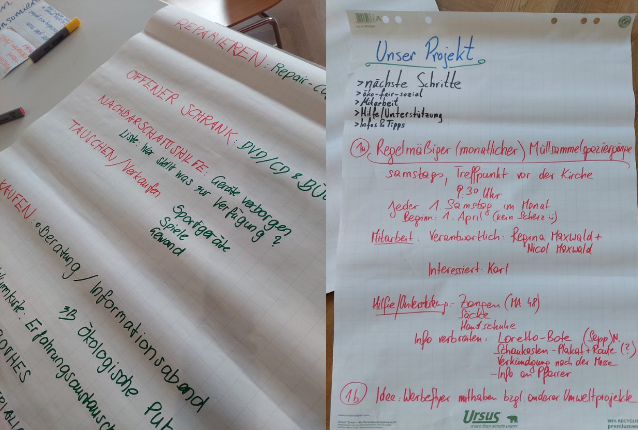 REPARIEREN: Repair-
OFFENER SCHRANK: DVD/CD &
NACHBARSCHAFTSHILFE: Geräte verborgen
Liste: Wer stellt was zur Verfügung?
TAUSCHEN/Verkaufen
Sportgeräte
Spiele
Gewand
KAUFEN
Beratung / Informationsabend
zB ökologische
Erfahrungsaustausch
Unser Projekt
>nächste Schritte
>öko-fair-sozial
>Mitarbeit
>Hilfe/Unterstützung
>Infos & Tipps
1a) Regelmäßiger (monatlicher) Müllsammelspaziergang
samstags, Treffpunkt vor der Kirche
9 30 Uhr
jeder 1. Samstag im Monat
Beginn: 1. April (kein Scherz :-)
Mitarbeit: Verantwortlich: Regina Maxwald +
Nicol Maxwald
Interessiert Karl
Hilfe/Unterstützung: Zangen (MA 48)
Säcke
Handschuhe
Info verbreiten: Loretto-Bote (Sepp)
Schaukasten-Plakat + Route (?)
Verkündigung nach der Messe
-Info an Pfarrer
1b) Idee: Werbeflyer mithaben bzgl anderer Umweltprojekte
Ursus